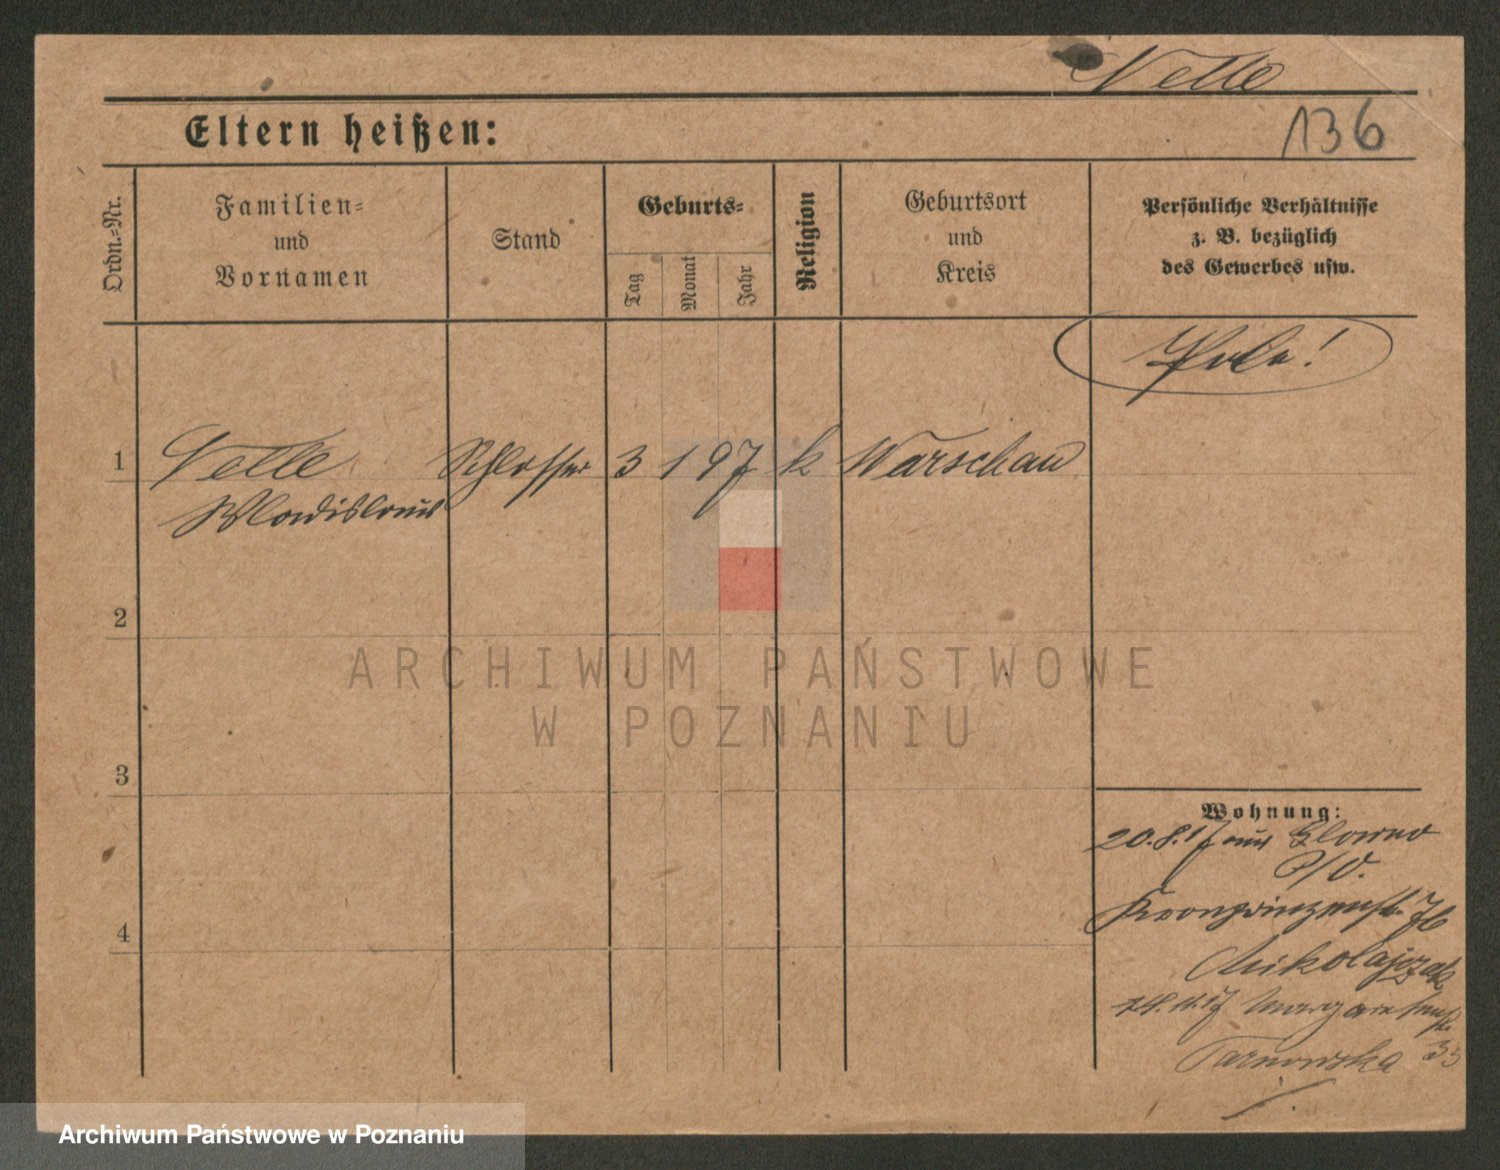 Velle
136
Eltern heißen:
Ordn.=Nr.
Familien=
und
Vornamen
Stand
Geburts=
Tag
Monat
Jahr
Religion
Geburtsort
und
Kreis
Persönliche Verhältnisse
z. B. bezüglich
des Gewerbes usw.
Pole!
1 Velle Schlosser 3 1 97 k Warschau
Wladislaus
2
3
4
Wohnung:
20.8.17 aus Glowno
P/O.
Kronprinzenstr. 76
Mikolajczak
14.11.17 Margaretenstr.
Tarnowska 33
ARCHIWUM PAŃSTWOWE
W POZNANIU
Archiwum Państwowe w Poznaniu